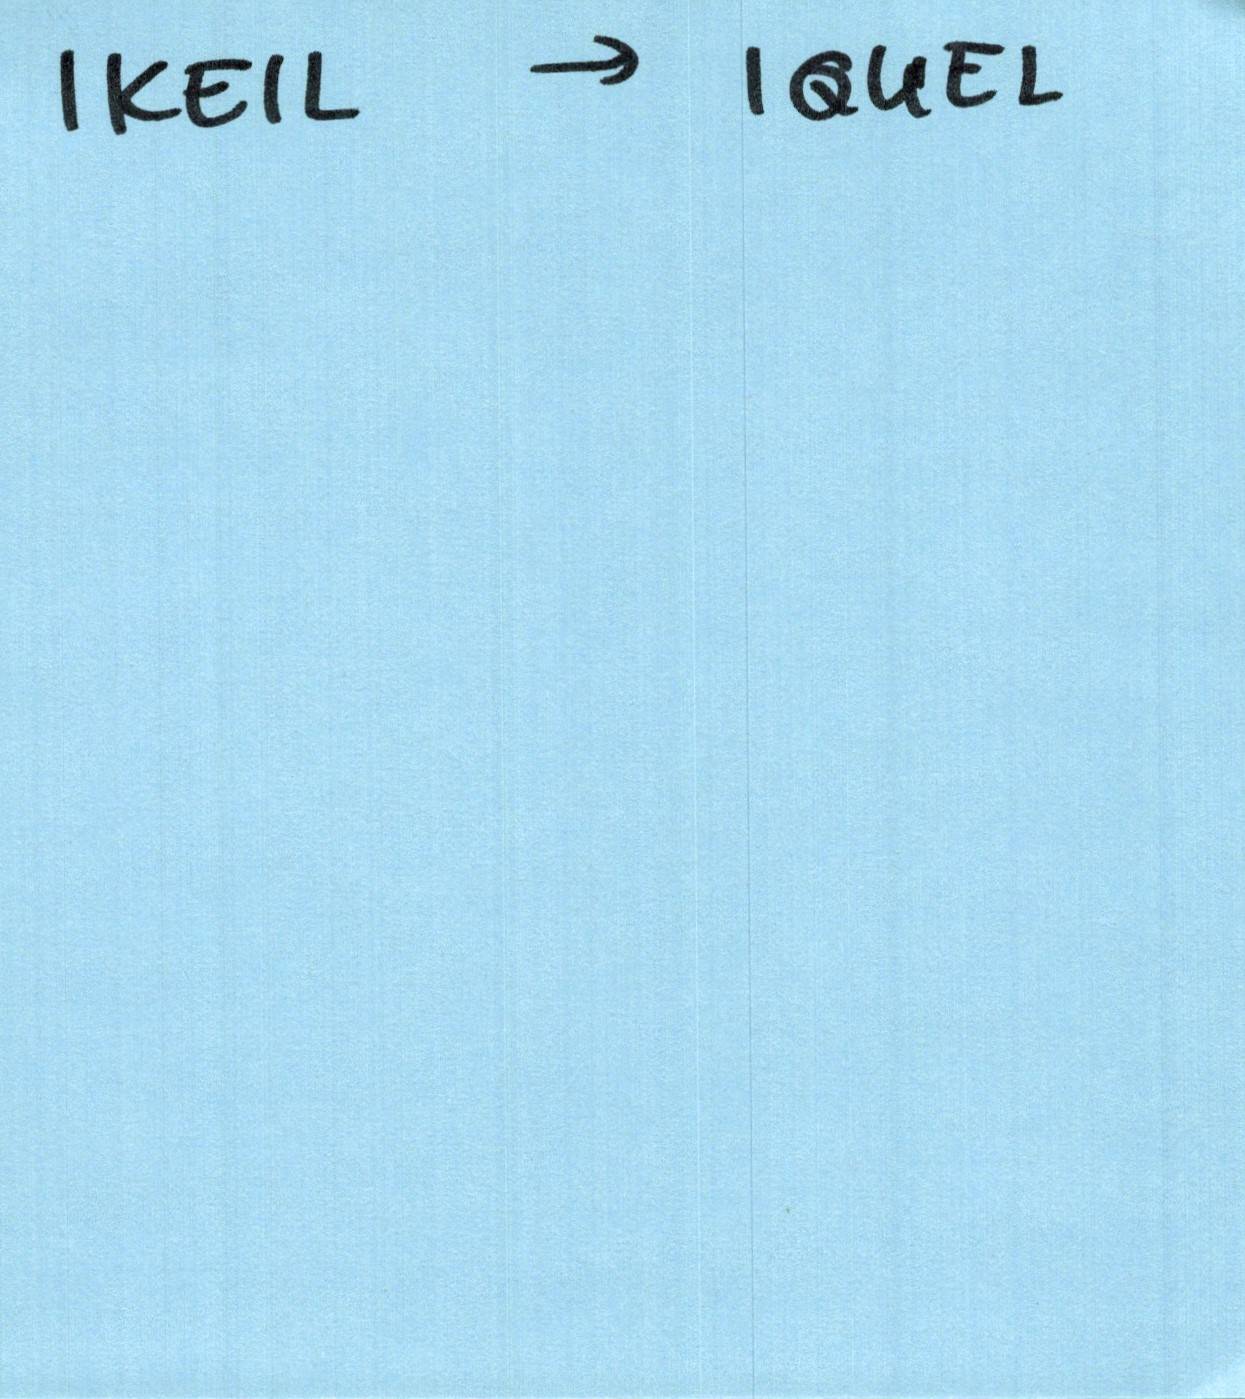 IKEIL → IQUEL